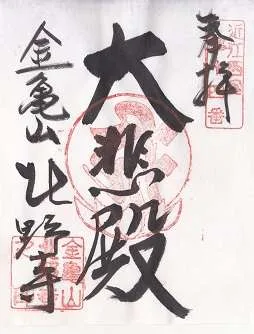 奉拝
近江西国
番
大悲殿
金亀山 北野寺
金亀山